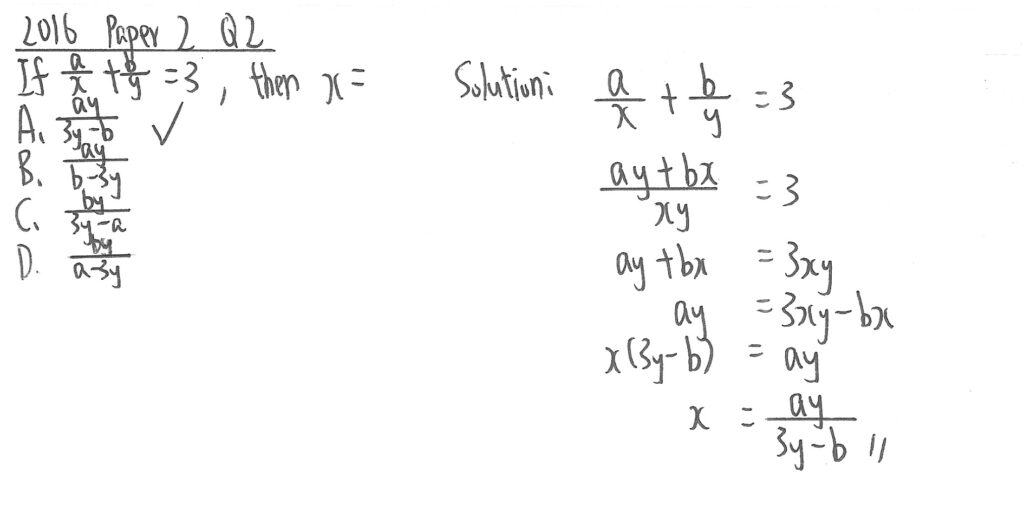 2016 Paper 2 Q2
If a/x + b/y = 3, then x =
A. ay/(3y-b) ✓
B. ay/(b-3y)
C. by/(3y-a)
D. by/(a-3y)
Solution: a/x + b/y = 3
(ay+bx)/xy = 3
ay+bx = 3xy
ay = 3xy-bx
x(3y-b) = ay
x = ay/(3y-b) //